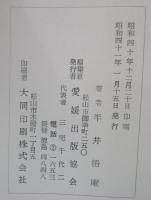 昭和四十年十二月二十日印刷
昭和四十一年一月十五日発行
著者 平井
編集兼
発行者
松山市
愛媛出版協会
代表者 三宅千代二
電話 ② 一六五三
振替 徳島 四八四八
印刷者
松山市木屋町一丁目五
大同印刷株式会社